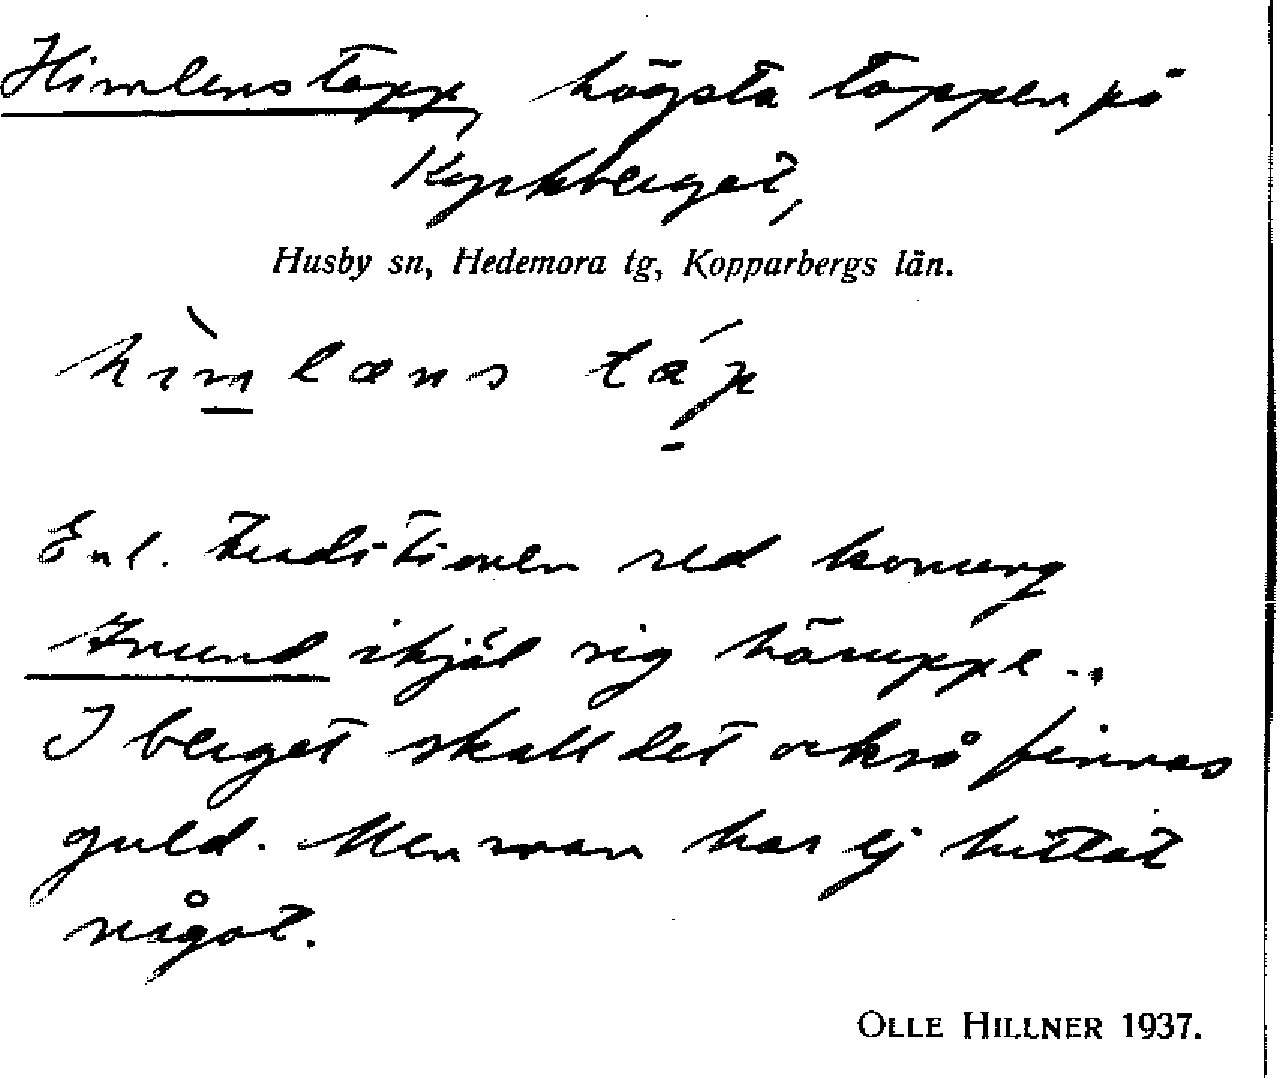 Himlens topp, högsta toppen på
Kyrkberget,
Husby sn, Hedemora tg, Kopparbergs län.
hìmlæns táp
Enl. traditionen red konung
Anund ihjäl sig häruppe..
I berget skall det också finnas
guld. Men man har ej hittat
något.
OLLE HILLNER 1937.